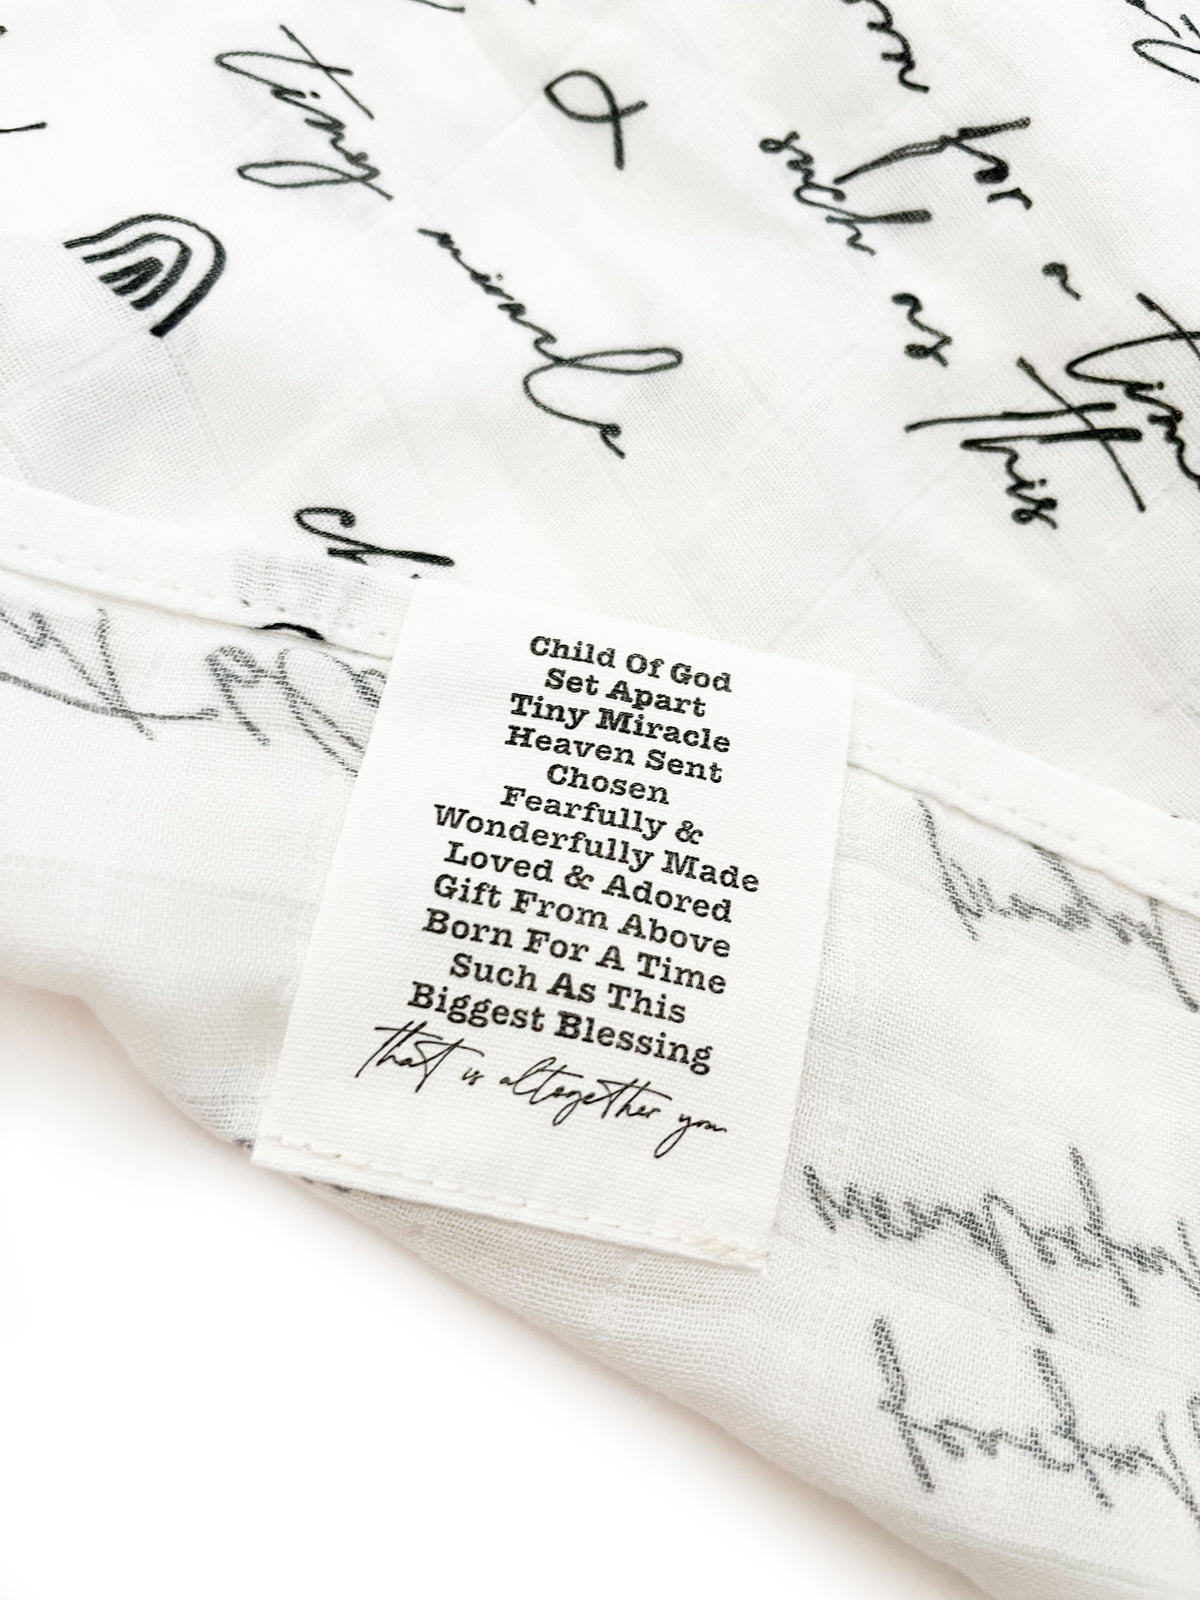 tiny
miracle
for
such
a
as
this
Child Of God
Set Apart
Tiny Miracle
Heaven Sent
Chosen
Fearfully &
Wonderfully Made
Loved & Adored
Gift From Above
Born For A Time
Such As This
Biggest Blessing
that is altogether you